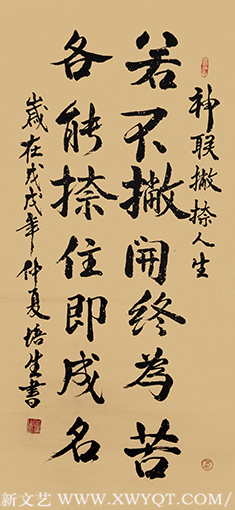 神联撇捺人生
若不撇開终為苦
各能捺住即成名
歲在戊戌年仲夏培生書
新文艺 WWW.XWYQT.COM/